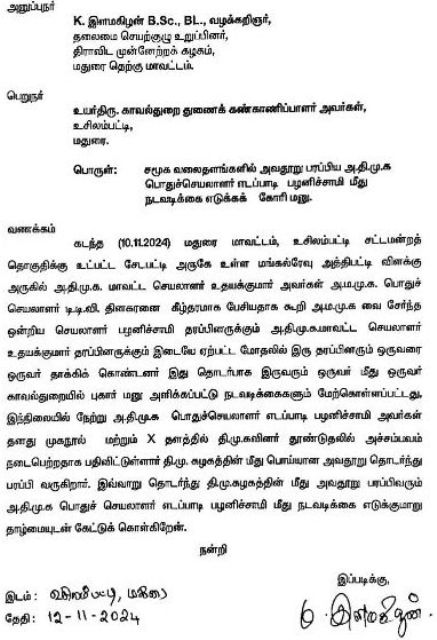 அனுப்புநர்
K. இளமகிழன் B.Sc., BL., வழக்கறிஞர்,
தலைமை செயற்குழு உறுப்பினர்,
திராவிட முன்னேற்றக் கழகம்,
மதுரை தெற்கு மாவட்டம்.
பெறுநர்
உயர்திரு. காவல்துறை துணைக் கண்காணிப்பாளர் அவர்கள்,
உசிலம்பட்டி,
மதுரை.
பொருள்: சமூக வலைதளங்களில் அவதூறு பரப்பிய அ.தி.மு.க
பொதுச்செயலாளர் எடப்பாடி பழனிச்சாமி மீது
நடவடிக்கை எடுக்கக் கோரி மனு.
வணக்கம்
கடந்த (10.11.2024) மதுரை மாவட்டம், உசிலம்பட்டி சட்டமன்றத்
தொகுதிக்கு உட்பட்ட சேடபட்டி அருகே உள்ள மங்கல்ரேவு அத்திபட்டி விளக்கு
அருகில் அ.தி.மு.க. மாவட்ட செயலாளர் உதயக்குமார் அவர்கள் அ.ம.மு.க. பொதுச்
செயலாளர் டி.டி.வி. தினகரனை கீழ்தரமாக பேசியதாக கூறி அ.ம.மு.க வை சேர்ந்த
ஒன்றிய செயலாளர் பழனிச்சாமி தரப்பினருக்கும் அ.தி.மு.க.மாவட்ட செயலாளர்
உதயக்குமார் தரப்பினருக்கும் இடையே ஏற்பட்ட மோதலில் இரு தரப்பினரும் ஒருவரை
ஒருவர் தாக்கிக் கொண்டனர் இது தொடர்பாக இருவரும் ஒருவர் மீது ஒருவர்
காவல்துறையில் புகார் மனு அளிக்கப்பட்டு நடவடிக்கைகளும் மேற்கொள்ளப்பட்டது,
இந்நிலையில் நேற்று அ.தி.மு.க பொதுச்செயலாளர் எடப்பாடி பழனிச்சாமி அவர்கள்
தனது முகநூல் மற்றும் X தளத்தில் தி.மு.கவினர் தூண்டுதலில் அச்சம்பவம்
நடைபெற்றதாக பதிவிட்டுள்ளார் தி.மு. கழகத்தின் மீது பொய்யான அவதூறு தொடர்ந்து
பரப்பி வருகிறார். இவ்வாறு தொடர்ந்து தி.மு.கழகத்தின் மீது அவதூறு பரப்பிவரும்
அ.தி.மு.க பொதுச் செயலாளர் எடப்பாடி பழனிச்சாமி மீது நடவடிக்கை எடுக்குமாறு
தாழ்மையுடன் கேட்டுக் கொள்கிறேன்.
நன்றி
இப்படிக்கு,
இடம்: உசிலம்பட்டி, மதுரை
தேதி: 12-11-2024